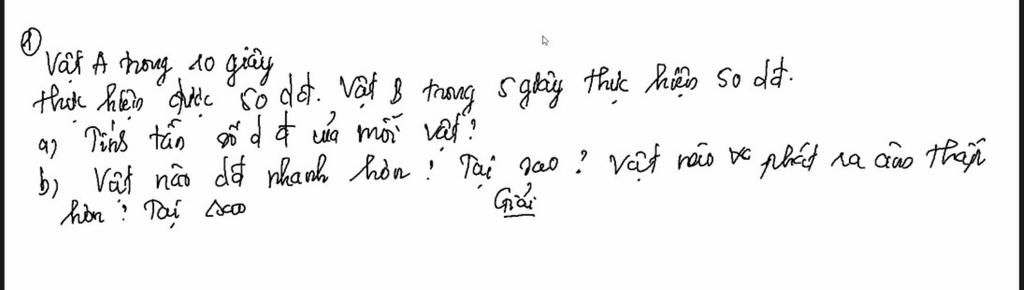 ① Vật A trong 10 giây
thực hiện được 50 dđ. Vật B trong 5 giây thực hiện 50 dđ.
a) Tính tần số dđ của mỗi vật?
b) Vật nào dđ nhanh hơn? Tại sao? Vật nào phát ra âm thấp
hơn? Tại sao
Giải